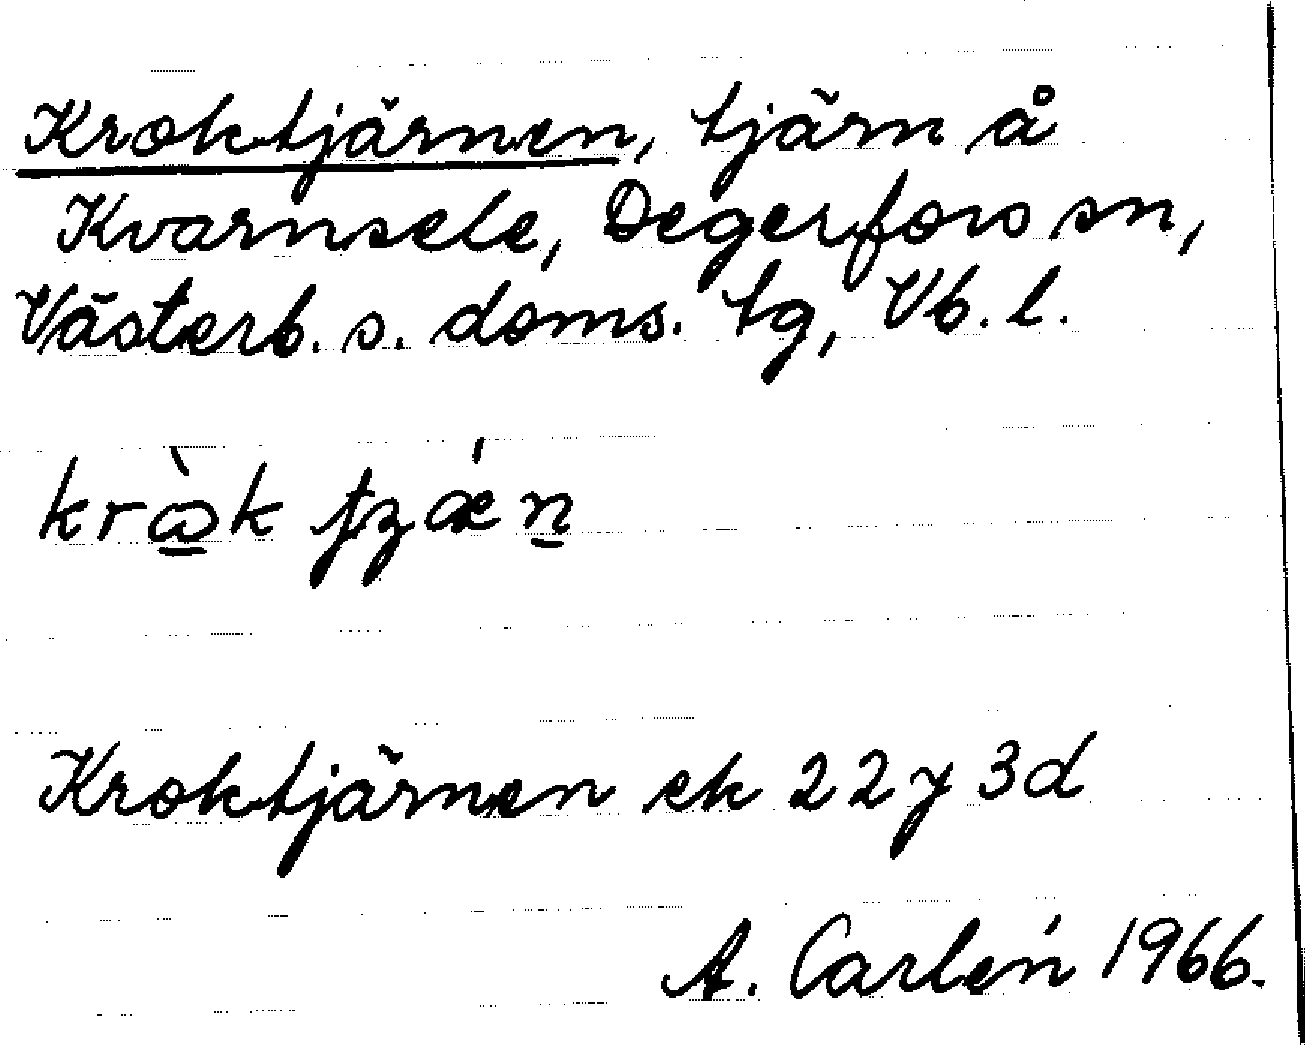 Kroktjärnen, tjärn å
Kvarnsele, Degerfors sn,
Västerb. s. doms. tg, Vb. l.
Kroktjärnen ek 22 y 3d
A. Carlén 1966.